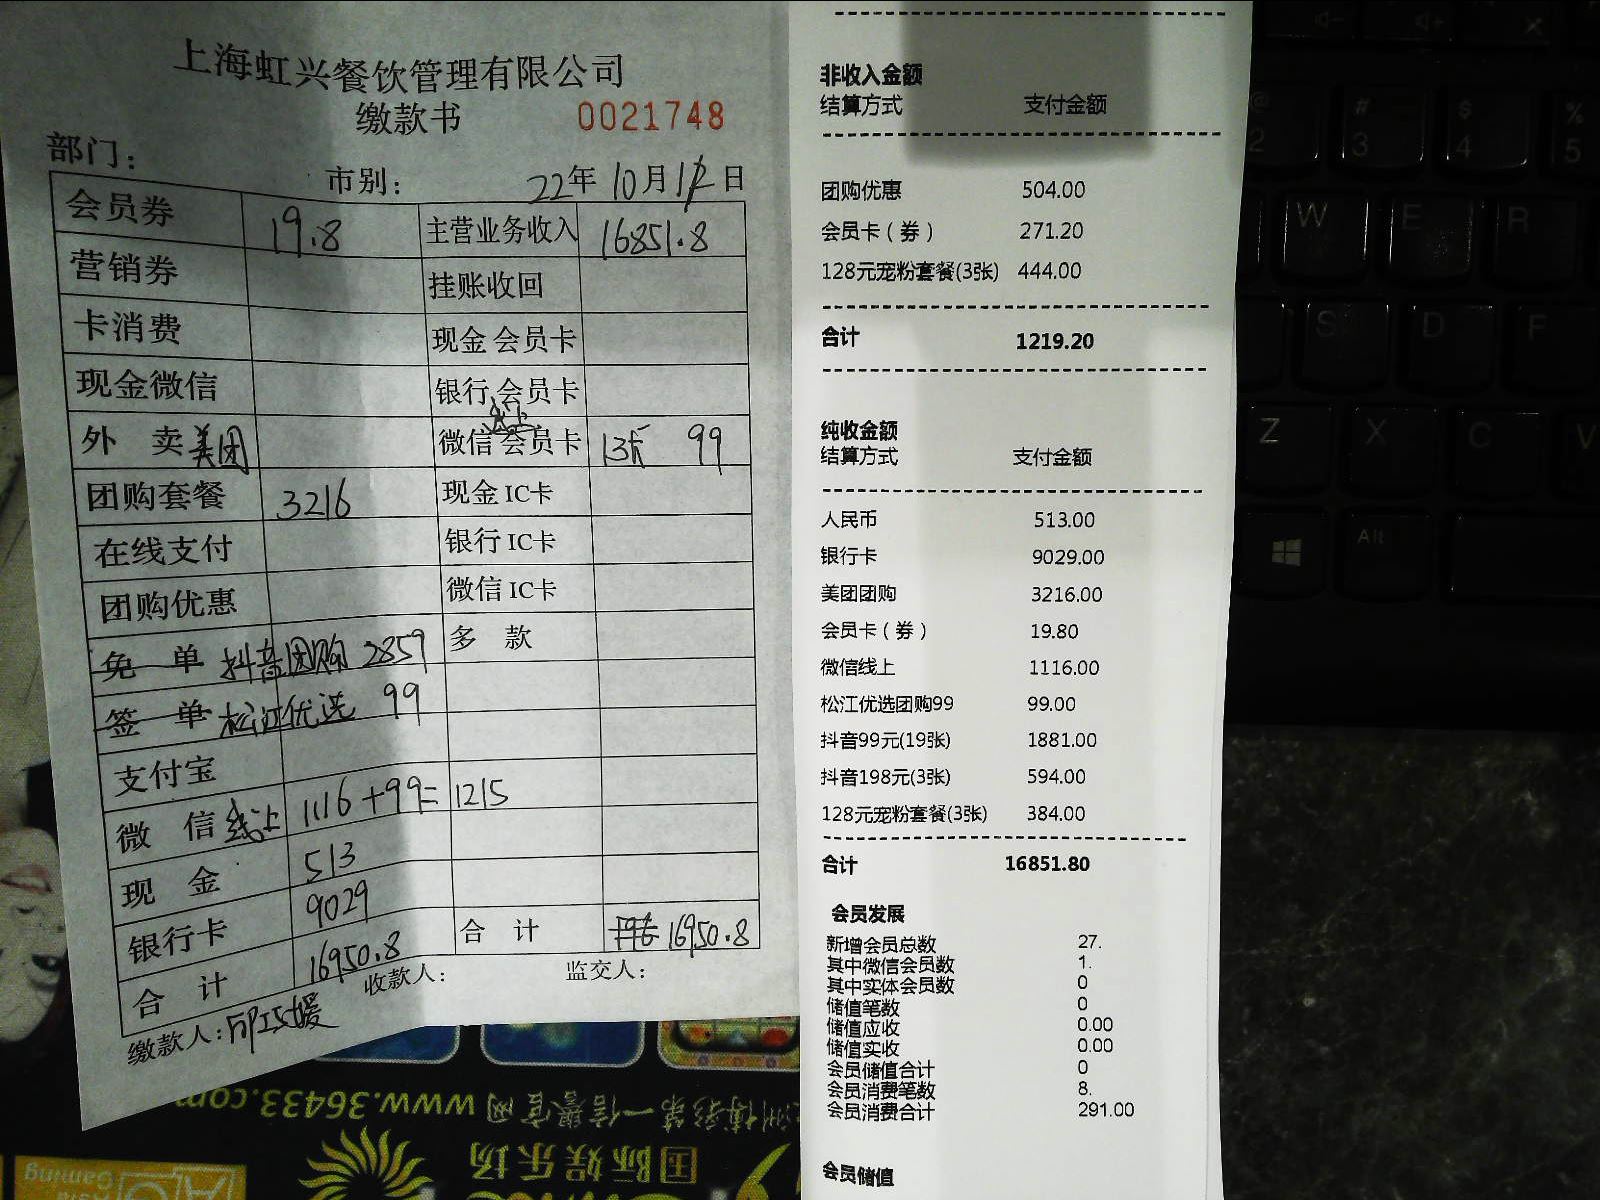 上海虹兴餐饮管理有限公司
缴款书 0021748
部门： 市别： 22年 10月 12日
会员券 19.8 主营业务收入 16851.8
营销券 挂账收回
卡消费 现金 会员卡
现金微信 银行 会员卡
外 卖 美团 微信 线上 会员卡 1张 99
团购套餐 3216 现金 IC卡
在线支付 银行 IC卡
团购优惠 微信 IC卡
免 单 抖音团购 2859 多 款
签 单 松江优选 99
支付宝
微 信 线上 1116+99= 1215
现 金 513
银行卡 9029
合 计 16950.8 合 计 16950.8
缴款人： 收款人： 监交人：
非收入金额
结算方式 支付金额
团购优惠 504.00
会员卡（券） 271.20
128元宠粉套餐(3张) 444.00
合计 1219.20
纯收金额
结算方式 支付金额
人民币 513.00
银行卡 9029.00
美团团购 3216.00
会员卡（券） 19.80
微信线上 1116.00
松江优选团购99 99.00
抖音99元(19张) 1881.00
抖音198元(3张) 594.00
128元宠粉套餐(3张) 384.00
合计 16851.80
会员发展
新增会员总数 27.
其中微信会员数 1.
其中实体会员数 0
储值笔数 0
储值应收 0.00
储值实收 0.00
会员储值合计 0
会员消费笔数 8.
会员消费合计 291.00
会员储值
@ 2 # 3 $ 4 % 5
W E R
S D F
Z X C V
Alt
洲博彩第一信誉官网 www.36433.com
国际娱乐场
Asia Gaming